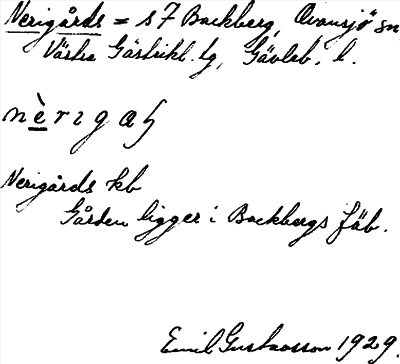 Nerigårds = s 7 Backberg, Ovansjö sn
Västra Gästrikl. tg, Gävleb. l.
nèrɪgaʂ
Nerigårds kb
Gården ligger i Backbergs fäb.
Emil Gustavsson 1929.